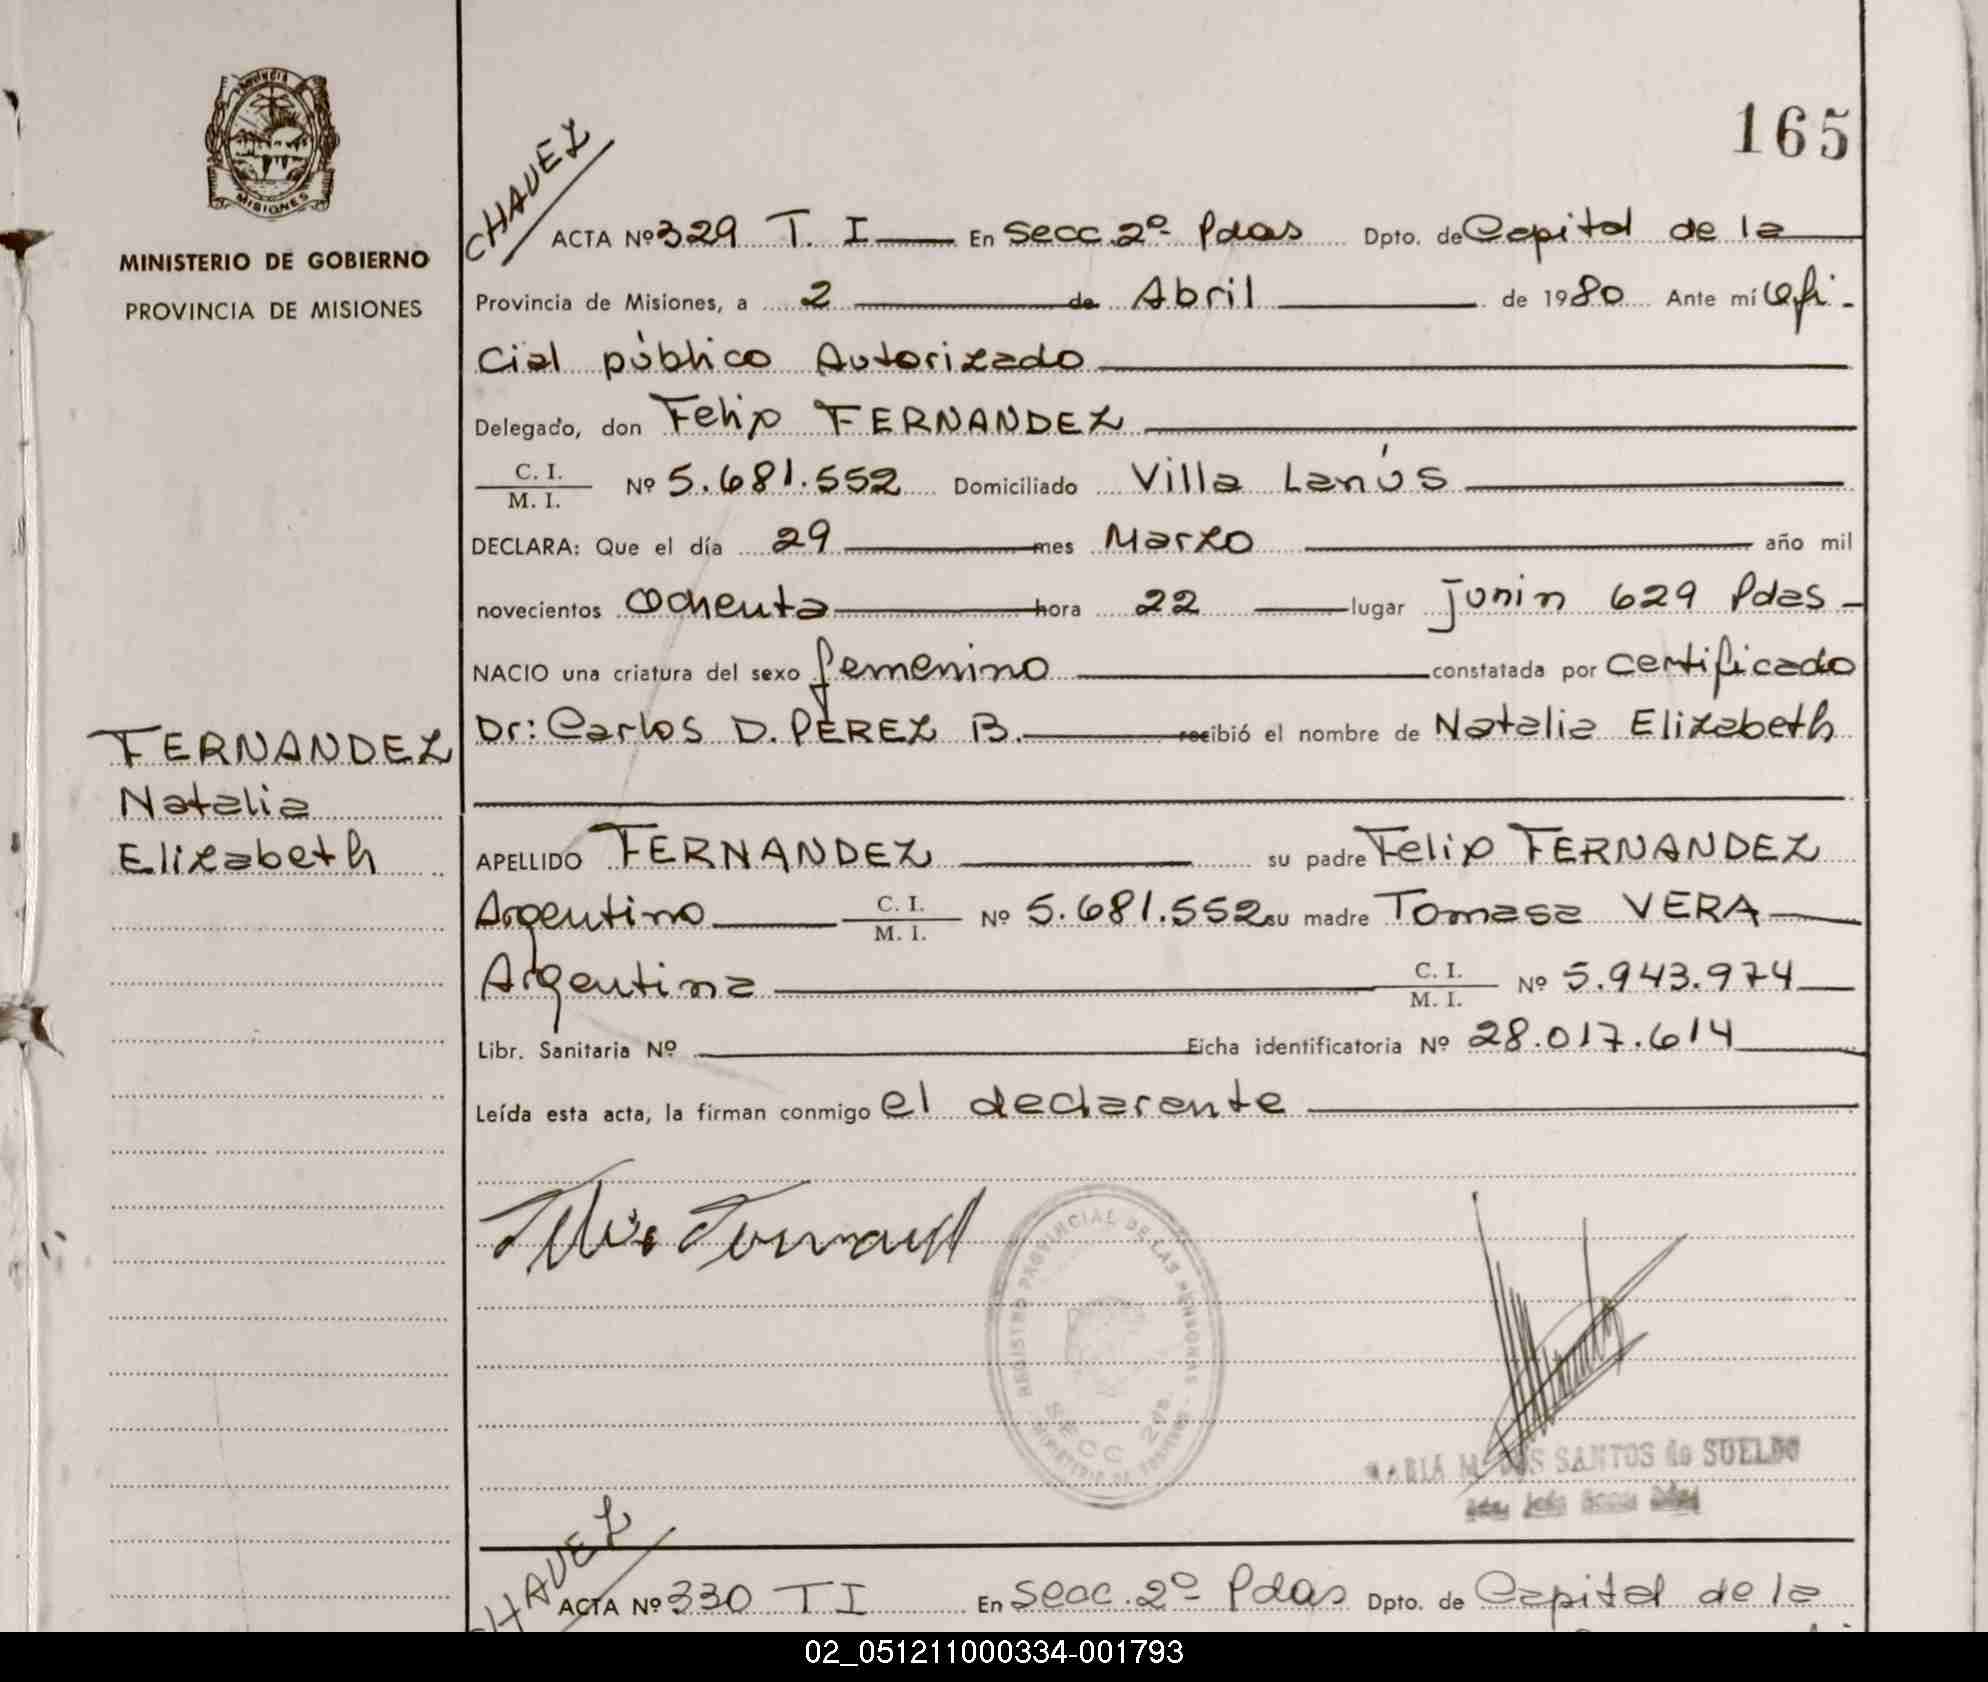 165
CHAVEZ
MISIONES
MINISTERIO DE GOBIERNO
PROVINCIA DE MISIONES
ACTA Nº 329 T. I En Secc. 2º Pdas Dpto. de Capital de la
Provincia de Misiones, a 2 de Abril de 1980 Ante mí Ofi-
cial público Autorizado
Delegado, don Felip FERNANDEZ
C. I.
M. I.
Nº 5.681.552 Domiciliado Villa Lanús
DECLARA: Que el día 29 mes Marzo año mil
novecientos ochenta hora 22 lugar Junin 629 Pdas
NACIO una criatura del sexo femenino constatada por certificado
Dr: Carlos D. PEREZ B. recibió el nombre de Natalia Elizabeth
FERNANDEZ
Natalia
Elizabeth
APELLIDO FERNANDEZ su padre Felip FERNANDEZ
Argentino C. I. M. I. Nº 5.681.552 su madre Tomasa VERA
Argentina C. I. M. I. Nº 5.943.974
Libr. Sanitaria Nº Ficha identificatoria Nº 28.017.614
Leída esta acta, la firman conmigo el declarente
REGISTRO PROVINCIAL DE LAS PERSONAS
SECC 2da
MARIA M. DOS SANTOS de SUELDO
CHAVEZ
ACTA Nº 330 T I En Secc. 2º Pdas Dpto. de Capital de la
02_051211000334-001793